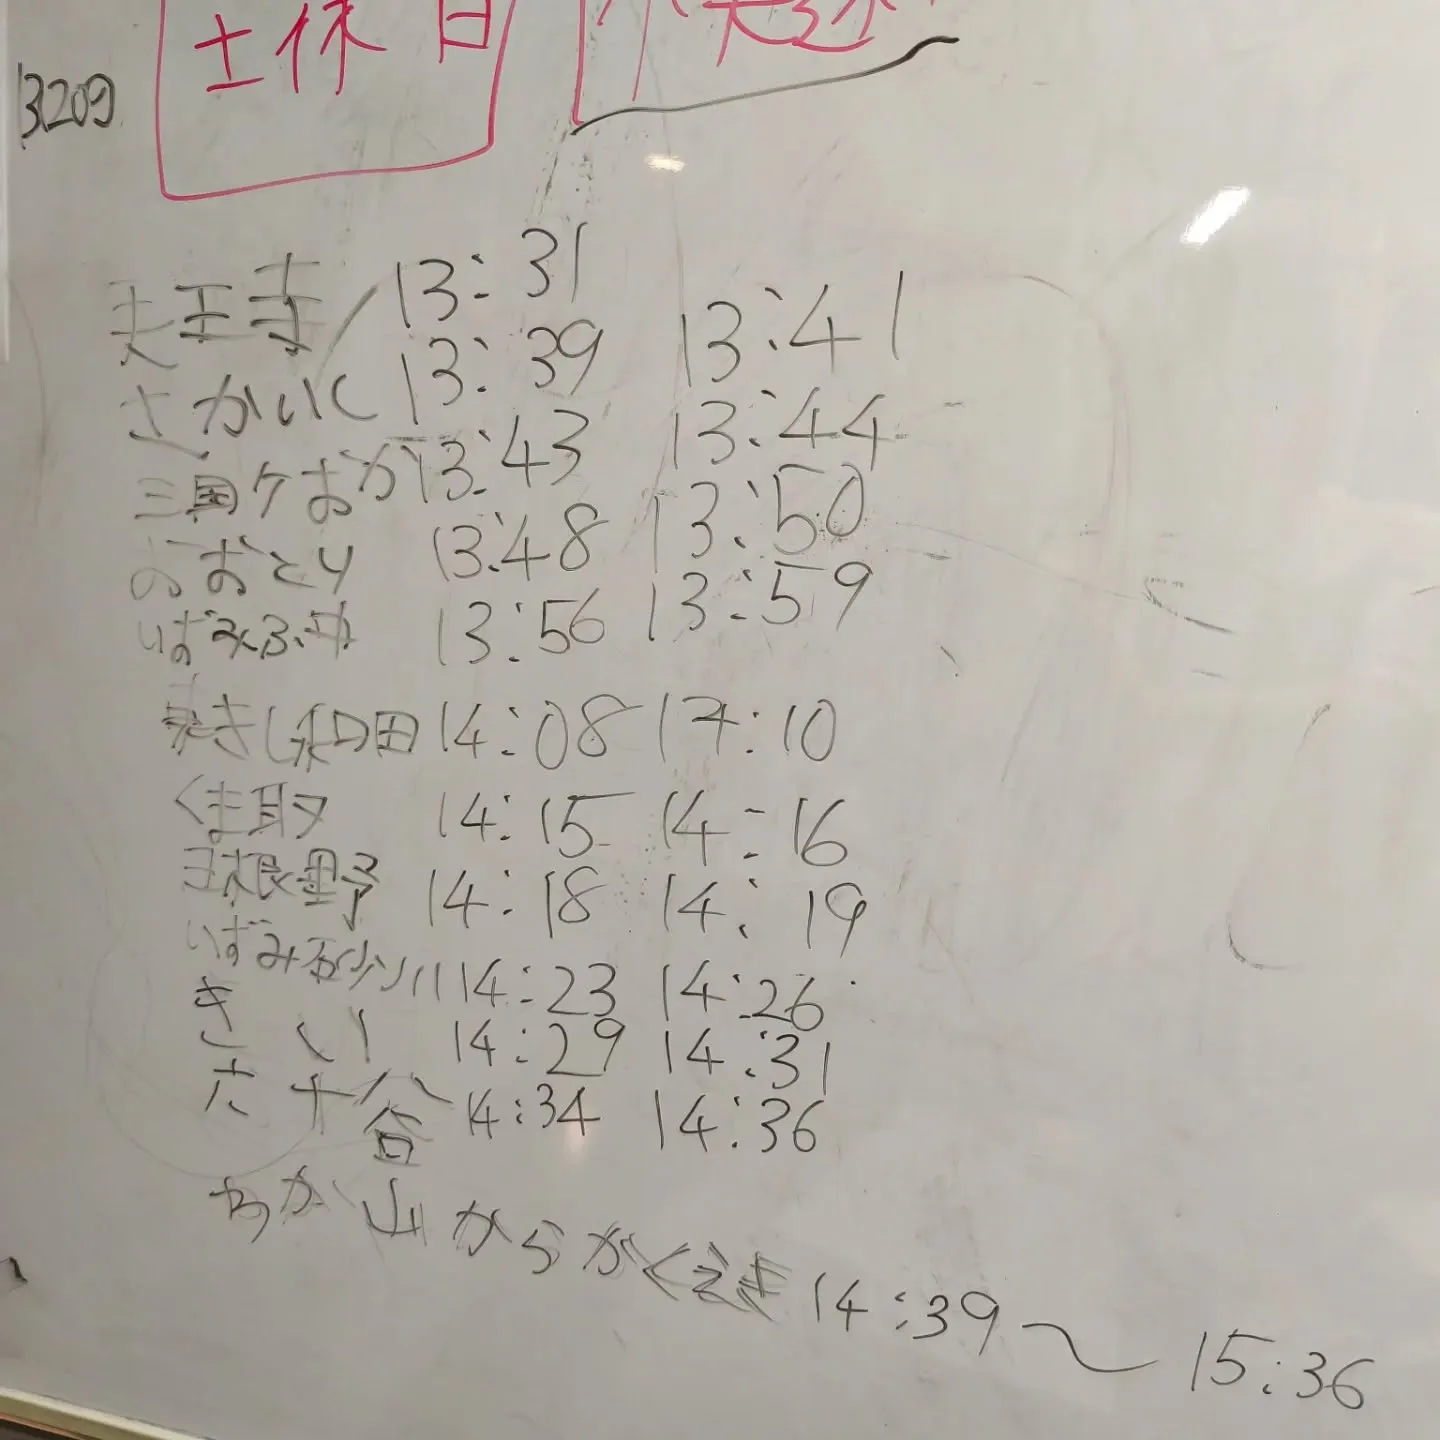 土休日
3209
天王寺 13:31
さかいし 13:39 13:41
三国ケおか 13:43 13:44
おおとり 13:48 13:50
いずみふ中 13:56 13:59
東きし和田 14:08 14:10
くま取 14:15 14:16
日根野 14:18 14:19
いずみ砂川 14:23 14:26
きい 14:29 14:31
六十谷 14:34 14:36
わか山から 14:39〜15:36